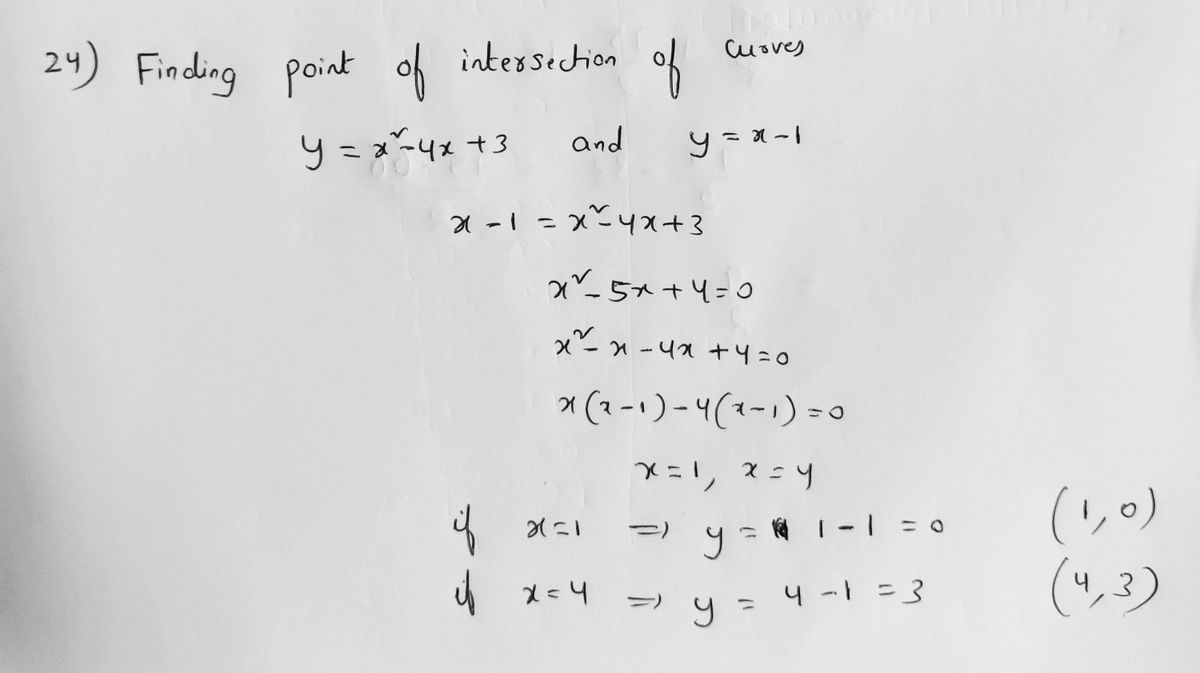 24) Finding point of intersection of curves
y = x²-4x+3 and y = x-1
x-1 = x²-4x+3
x²-5x+4=0
x²-x-4x+4=0
x(x-1)-4(x-1)=0
x=1, x=4
if x=1 => y = 1-1 = 0 (1,0)
if x=4 => y = 4-1 = 3 (4,3)